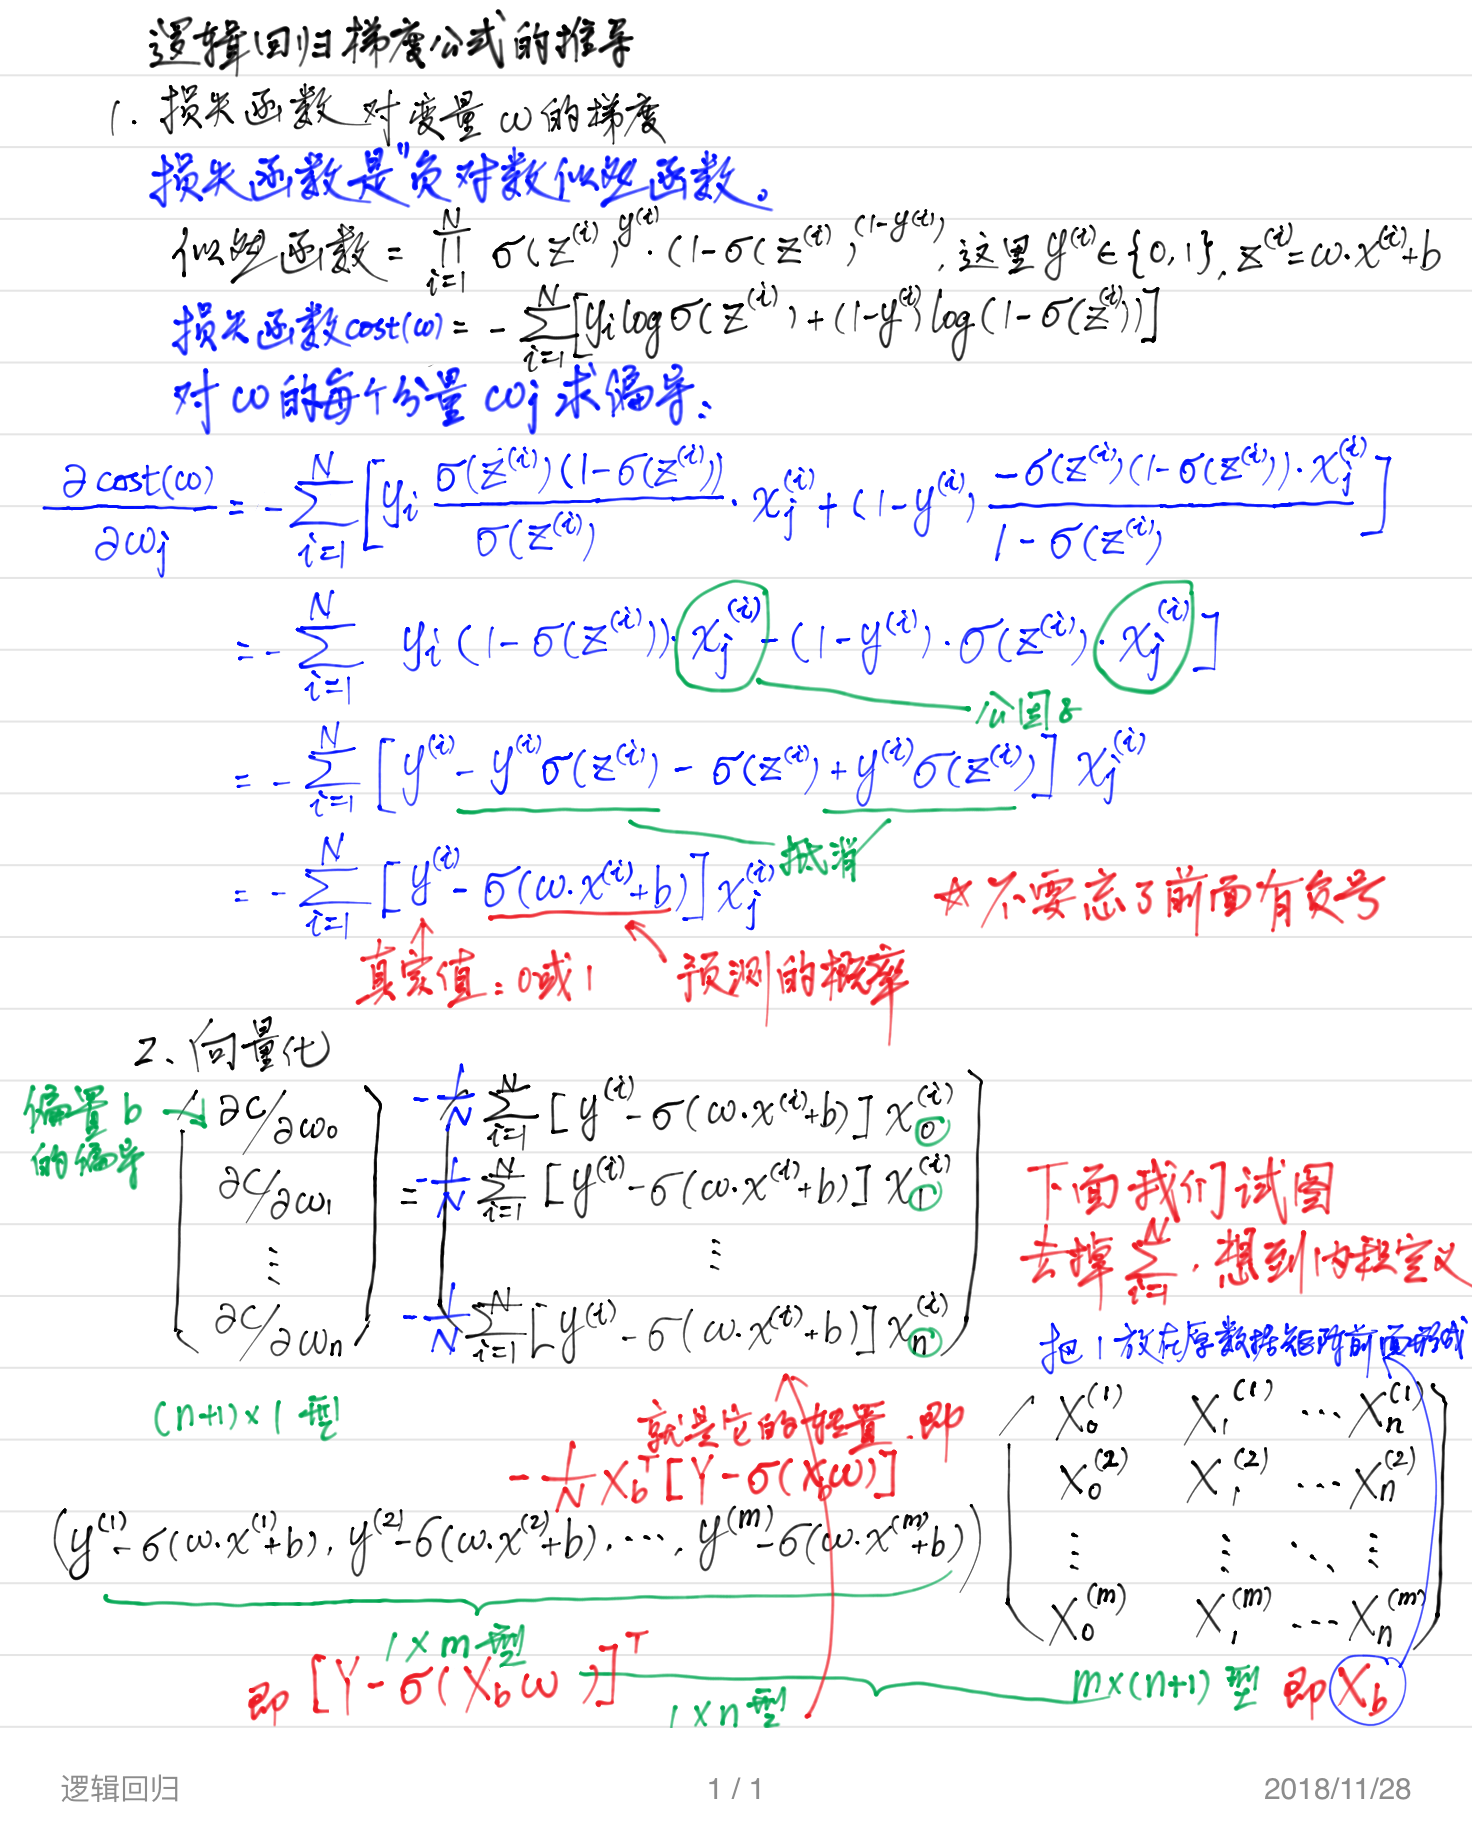 逻辑回归梯度公式的推导
1. 损失函数对变量 ω 的梯度
损失函数是"负对数似然函数。
似然函数 = ∏_{i=1}^{N} σ(z^{(i)})^{y^{(i)}} · (1-σ(z^{(i)})^{(1-y^{(i)})}, 这里 y^{(i)} ∈ {0,1}, z^{(i)} = ω·x^{(i)}+b
损失函数cost(ω) = - ∑_{i=1}^{N} [y_i log σ(z^{(i)}) + (1-y^{(i)}) log(1-σ(z^{(i)}))]
对 ω 的每个分量 ω_j 求偏导:
∂cost(ω)/∂ω_j = - ∑_{i=1}^{N} [ y_i σ(z^{(i)})(1-σ(z^{(i)}))/σ(z^{(i)}) · x_j^{(i)} + (1-y^{(i)}) -σ(z^{(i)})(1-σ(z^{(i)}))·x_j^{(i)}/1-σ(z^{(i)}) ]
= - ∑_{i=1}^{N} y_i (1-σ(z^{(i)}))· x_j^{(i)} - (1-y^{(i)})·σ(z^{(i)})· x_j^{(i)} ]
公因子
= - ∑_{i=1}^{N} [ y^{(i)} - y^{(i)}σ(z^{(i)}) - σ(z^{(i)}) + y^{(i)}σ(z^{(i)}) ] x_j^{(i)}
抵消
= - ∑_{i=1}^{N} [ y^{(i)} - σ(ω·x^{(i)}+b) ] x_j^{(i)}
☆不要忘了前面有负号
真实值:0或1 预测的概率
2、向量化
偏置b
的偏导
∂C/∂ω_0 -1/N ∑_{i=1}^{N} [y^{(i)} - σ(ω·x^{(i)}+b)] x_0^{(i)}
∂C/∂ω_1 = -1/N ∑_{i=1}^{N} [y^{(i)} - σ(ω·x^{(i)}+b)] x_1^{(i)}
⋮ ⋮
∂C/∂ω_n -1/N ∑_{i=1}^{N} [y^{(i)} - σ(ω·x^{(i)}+b)] x_n^{(i)}
下面我们试图
去掉 ∑_{i=1}^{N}, 想到内积定义
把1放在原数据矩阵前面形成
(n+1)×1 型
就是它的转置.即
-1/N X_b^T [Y-σ(X_bω)]
(y^{(1)}-σ(ω·x^{(1)}+b), y^{(2)}-σ(ω·x^{(2)}+b), ···, y^{(m)}-σ(ω·x^{(m)}+b))
X_0^{(1)} X_1^{(1)} ··· X_n^{(1)}
X_0^{(2)} X_1^{(2)} ··· X_n^{(2)}
⋮ ⋮ ⋱ ⋮
X_0^{(m)} X_1^{(m)} ··· X_n^{(m)}
1×m 型
即 [Y-σ(X_bω)]^T
1×n型
m×(n+1) 型 即 X_b
逻辑回归
1 / 1
2018/11/28